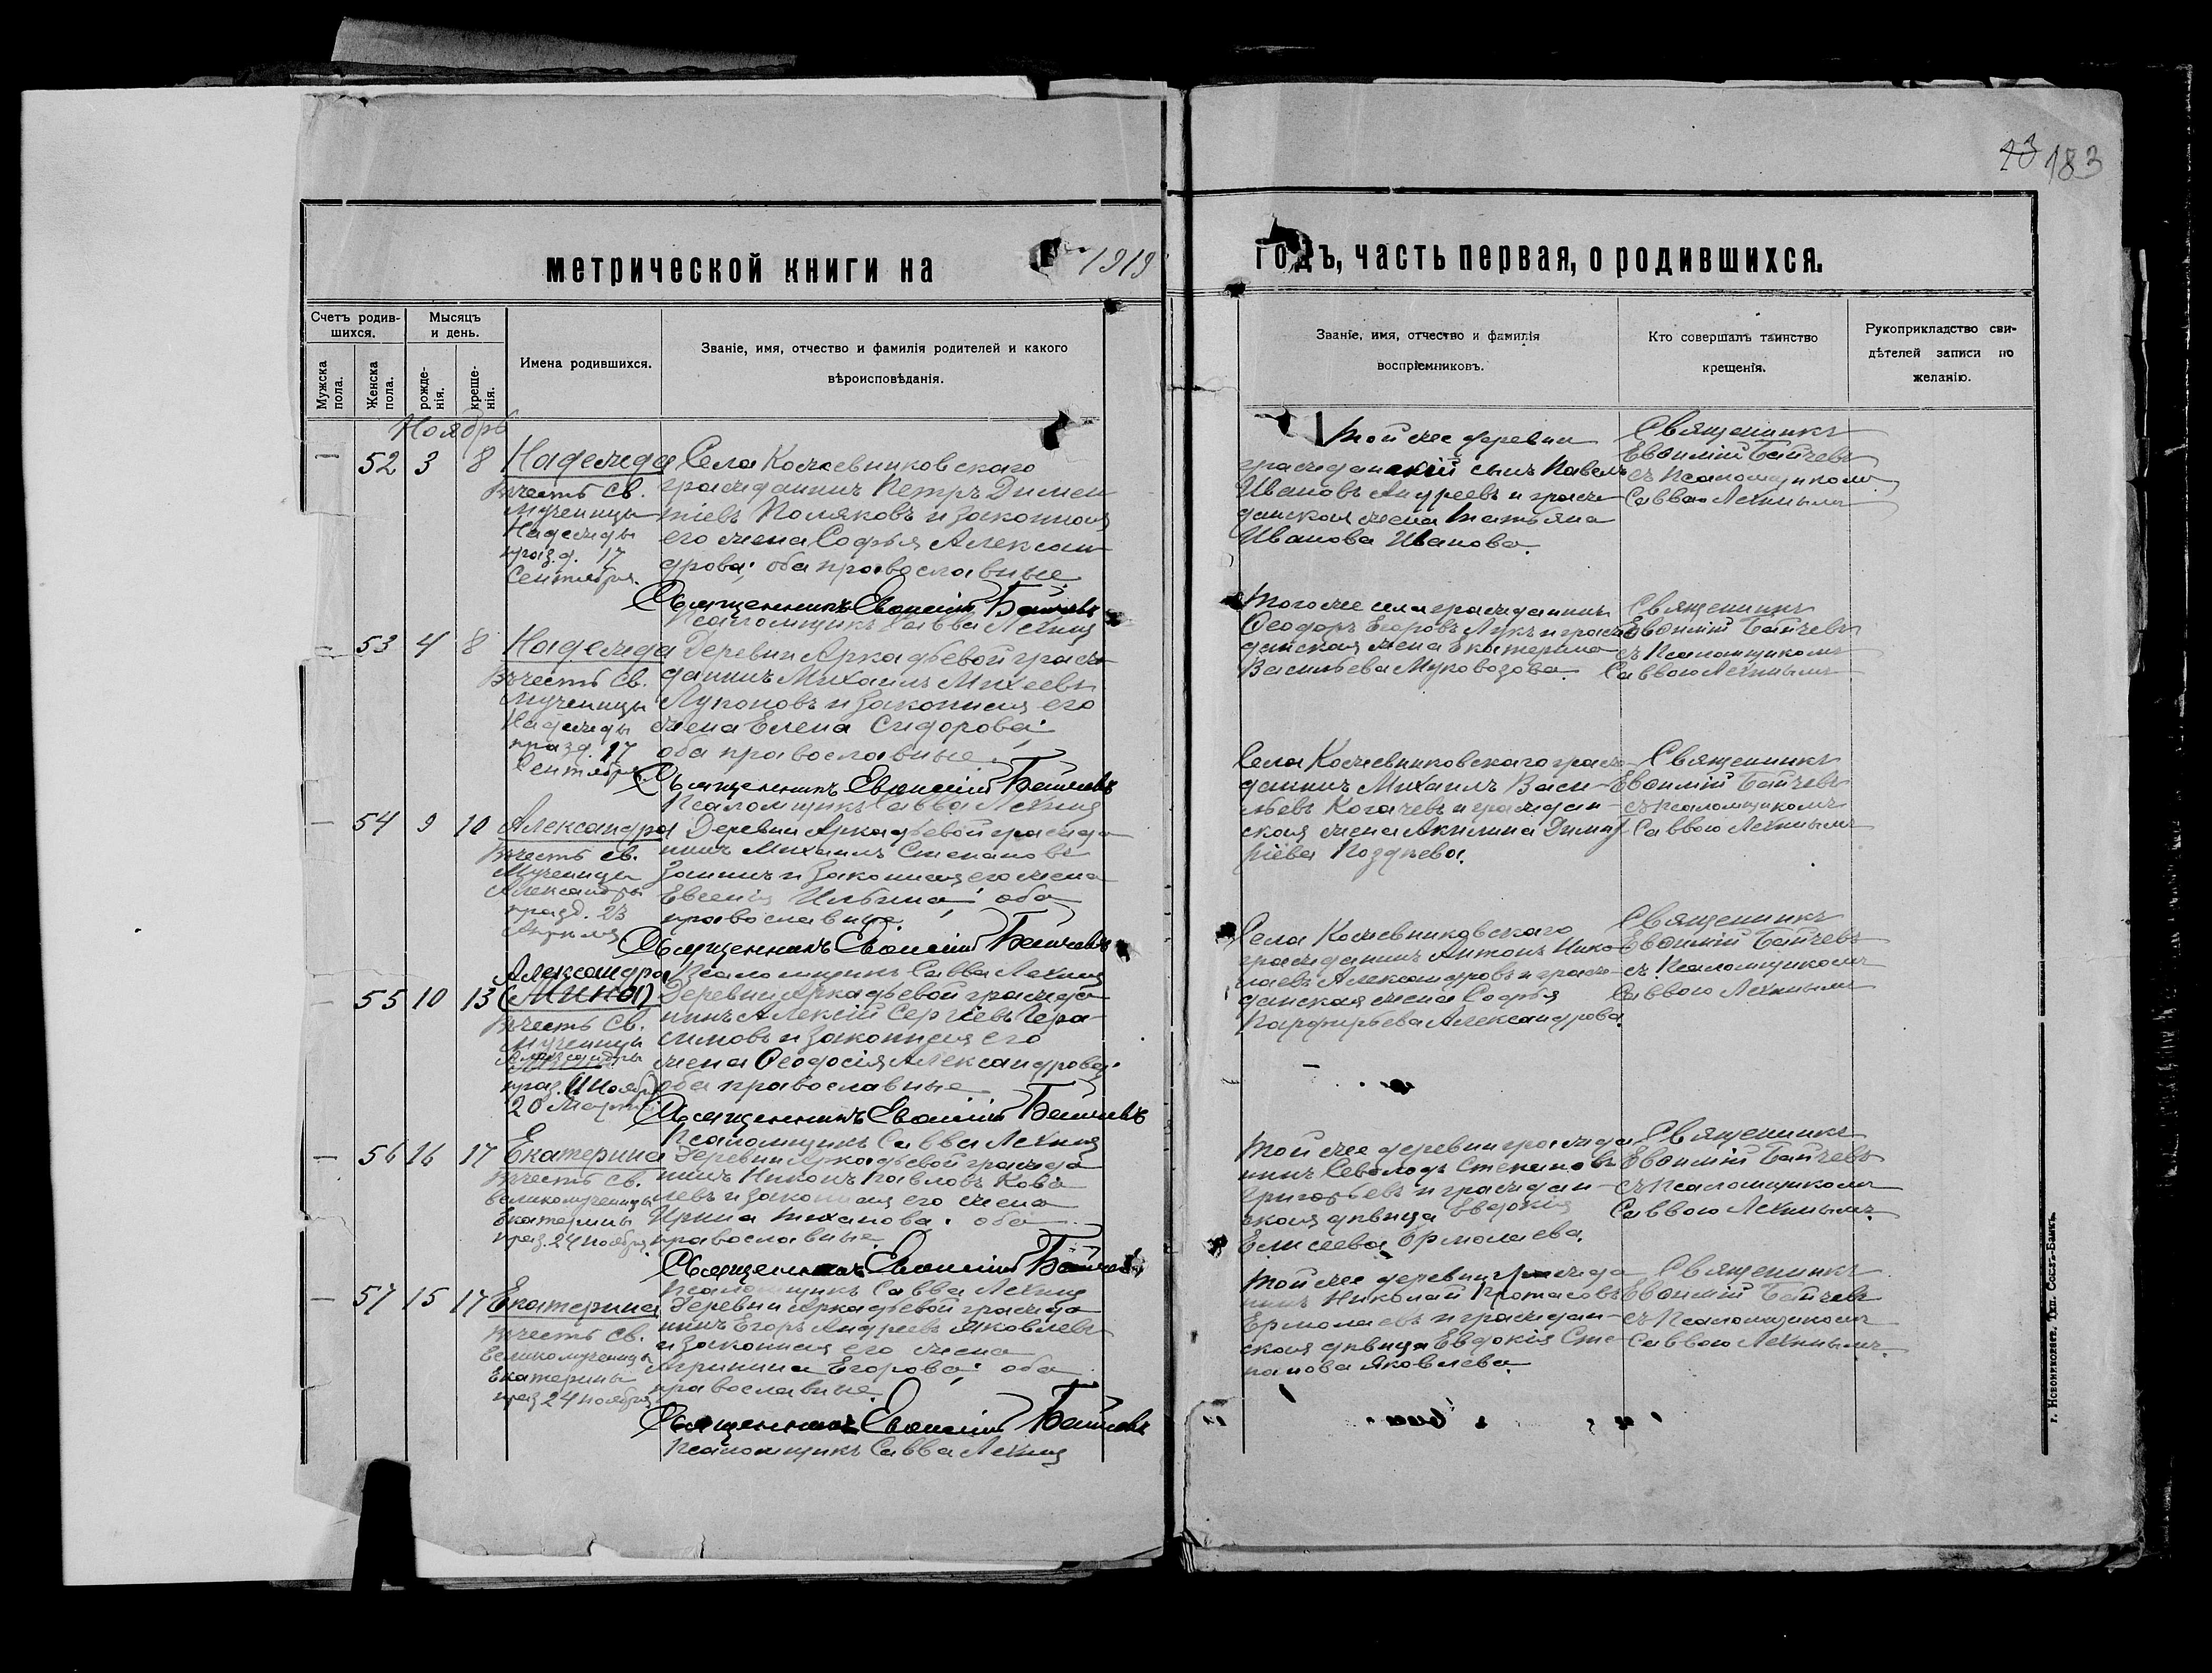 23 183
метрической книги на 1919
годъ, часть первая, о родившихся.
Счетъ родив-
шихся.
Мужска
пола.
Женска
пола.
Мѣсяцъ
и день.
рожде-
нія.
креще-
нія.
Имена родившихся.
Званіе, имя, отчество и фамилія родителей и какого
вѣроисповѣданія.
Званіе, имя, отчество и фамилія
воспріемниковъ.
Кто совершалъ таинство
крещенія.
Рукоприкладство сви-
дѣтелей записи по
желанію.
Ноябрь
— 52 3 8
Надежда
Въ честь св.
Мученицы
Надежды
празд. 17
Сентября.
Села Кожевниковскаго
гражданинъ Петръ Димен
тіевъ Поляковъ и законная
его жена Софья Алексан
дрова; оба православные.
Священникъ Евѳимій Байчевъ
Псаломщикъ Савва Лехниц
Той же деревни
гражданскій сынъ Павелъ
Ивановъ Андреевъ и граж-
данская жена Татьяна
Иванова Иванова.
Священникъ
Евѳимій Байчевъ
съ Псаломщикомъ
Саввою Лехнымъ
— 53 4 8
Надежда
Въ честь св.
Мученицы
Надежды
празд. 17
Сентября.
Деревни Аркадьевой граж-
данинъ Михаилъ Михеевъ
Лупоновъ и законная его
жена Елена Сидорова;
оба православные.
Священникъ Евѳимій Байчевъ
Псаломщикъ Савва Лехниц
Того же села гражданинъ
Ѳеодоръ Егоровъ Лукъ и граж-
данская жена Екатерина
Васильева Муковозова.
Священникъ
Евѳимій Байчевъ
съ Псаломщикомъ
Саввою Лехнымъ
— 54 9 10
Александра
Въ честь св.
Мученицы
Александры
празд. 23
Апреля
Деревни Аркадьевой гражда
нинъ Михаилъ Степановъ
Заннъ и законная его жена
Евгенія Ильина; оба
православные.
Священникъ Евѳимій Байчевъ
Псаломщикъ Савва Лехниц
Села Кожевниковскаго граж-
данинъ Михаилъ Васи-
льевъ Когачевъ и граждан-
ская жена Акилина Димит
ріева Позднева.
Священникъ
Евѳимій Байчевъ
съ псаломщикомъ
Саввою Лехнымъ
— 55 10 13
Александра
(Мина)
Въ честь св.
Мученицы
Александры
праз. 11 Ноября
20 Марта
Деревни Аркадьевой гражда
нинъ Алексій Сергіевъ Гера-
симовъ и законная его
жена Ѳеодосія Александрова;
оба православные
Священникъ Евѳимій Байчевъ
Псаломщикъ Савва Лехниц
Села Кожевниковскаго
гражданинъ Антонъ Нико-
лаевъ Александровъ и граж-
данская жена Софья
Парфирьева Александрова.
Священникъ
Евѳимій Байчевъ
съ Псаломщикомъ
Саввою Лехнымъ
— 56 16 17
Екатерина
Въ честь св.
великомученицы
Екатерины
праз. 24 ноября
Деревни Аркадьевой гражда
нинъ Никонъ Павловъ Кова
левъ и законная его жена
Ирина Тиханова; оба
православные.
Священникъ Евѳимій Байчевъ
Псаломщикъ Савва Лехниц
Той же деревни гражда
нинъ Севолодъ Степановъ
Григорьевъ и граждан-
ская дѣвица Евдокія
Елисеева Ермолаева.
Священникъ
Евѳимій Байчевъ
съ Псаломщикомъ
Саввою Лехнымъ.
— 57 15 17
Екатерина
Въ честь св.
Великомученицы
Екатерины
праз 24 ноября
Деревни Аркадьевой гражда
нинъ Егоръ Андреевъ Яковлевъ
и законная его жена
Агрипина Егорова; оба
православные.
Священникъ Евѳимій Байчевъ
Псаломщикъ Савва Лехниц
Той же деревни гражда
нинъ Николай Протасовъ
Ермолаевъ и граждан-
ская дѣвица Евдокія Сте-
панова Яковлева.
Священникъ
Евѳимій Байчевъ
съ Псаломщикомъ
Саввою Лехнымъ.
г. Новониколаевск. Тип. Союз-Банк.